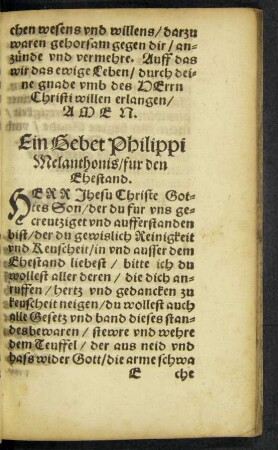 chen wesens vnd willens/ darzu
waren gehorsam gegen dir/ an-
zünde vnd vermehre. Auff das
wir das ewige Leben/ durch dei-
ne gnade vmb des HErrn
Christi willen erlangen/
A M E N.
Ein Gebet Philippi
Melanthonis/ fur den
Ehestand.
HERR Jhesu Christe Got-
tes Son/ der du fur vns ge-
creutziget vnd aufferstanden
bist/ der du gewislich Reinigkeit
vnd Keuscheit/ in vnd ausser dem
Ehestand liebest/ bitte ich du
wollest aller deren/ die dich an-
ruffen/ hertz vnd gedancken zu
keuscheit neigen/ du wollest auch
alle Gesetz vnd band dieses stan-
des bewaren/ stewre vnd wehre
dem Teuffel/ der aus neid vnd
hass wider Gott/ die arme schwa
E che